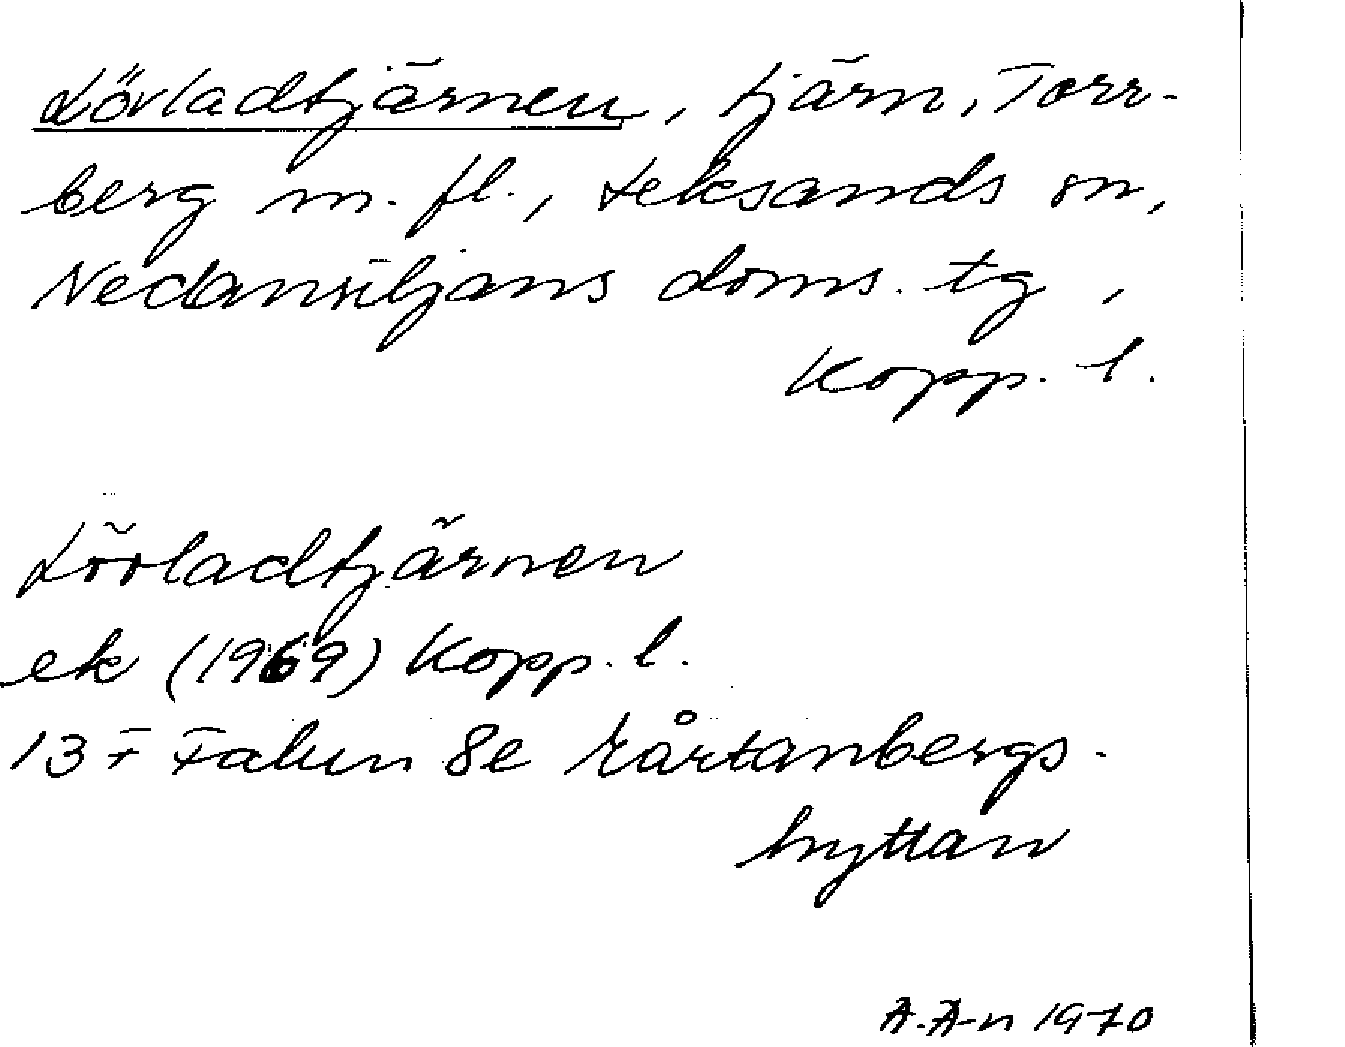 Lövladtjärnen, tjärn, Torr-
berg m. fl., Leksands sn,
Nedansiljans doms. tg,
Kopp. l.
Lövladtjärnen
ek (1969) Kopp. l.
13 F Falun 8e Kårtanbergs-
hyttan
A.Ä-n 1970